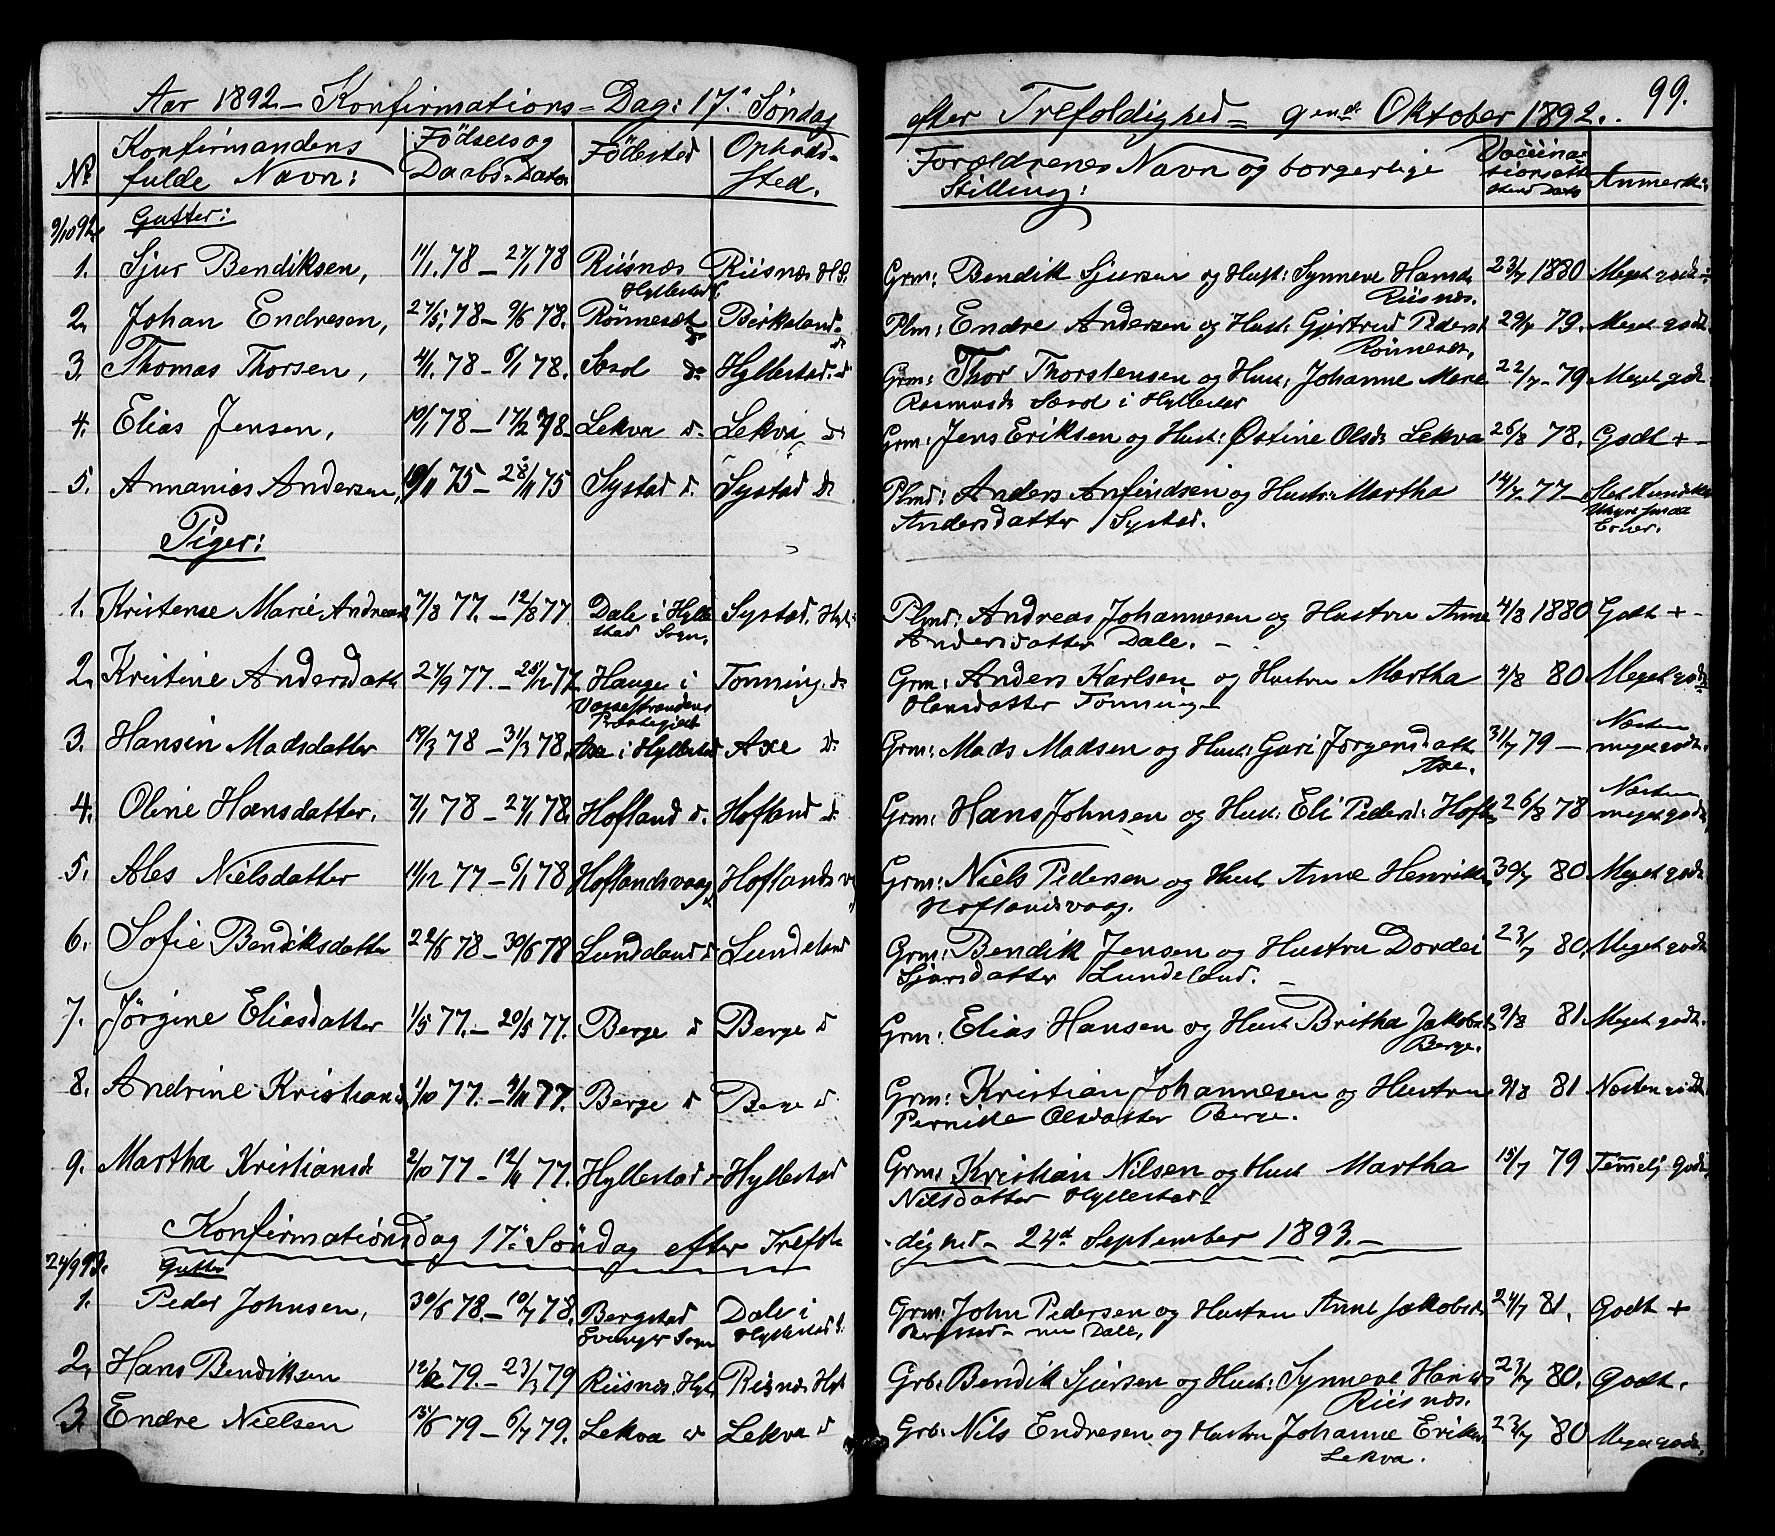 Aar 1892 – Konfirmations-Dag: 17de Søndag efter Trefoldighed – 9nde Oktober 1892. 99.
No Konfirmandens fulde Navn: Födsels og Daabs-Dato Födested Opholds-sted. Forældrenes Navn og borgerlige Stilling: Anmerk:
9/10 92. Gutter:
1. Sjur Bendiksen, 11/1 78 – 27/1 78 Riisnæs Hyllestad Riisnæs H.S. Grm: Bendik Sjursen og Hust: Synneve Hansd. Riisnes. 23/7 1880 Meget godt
2. Johan Endresen, 27/5 78 – 9/6 78. Rönneset do Birkeland do Plm: Endre Andersen og Hust: Gjertrud Pedersd. Rönneset, 29/7 79. Meget godt
3. Thomas Thorsen, 4/1 78 – 6/1 78. Særd do Hyllestad do Grm: Thor Thorstensen og Hust: Johanne Marie
Rasmusd. Særd i Hyllestad 22/7 – 79 Meget godt
4. Elias Jensen, 10/1 78 – 17/2 78 – Lekva do Lekva do Grm: Jens Eriksen og Hust: Østine Olsd. Lekva 26/8 78. Godt +
5. Annanias Andersen, 19/11 75 – 28/11 75 Systad do Systad do Plmd: Anders Anfindsen og Hustr: Martha
Andersdatter Systad. 14/7 77 –
Piger:
1. Kristense Marie Andreasd 7/8 77. – 12/8 77 Dale i Hyllestad Sogn. Systad. Hyl: Plmd: Andreas Johannesen og Hustru Anne
Andersdatter Dale. – 4/8 1880 Godt +
2. Kristine Andersdatt 27/9 77. – 25/12 77 Hauge i Vossestrandens Præstegjeld Tonning. do Grm: Anders Karlsen og Hustru Martha
Hansdatter Tonning 4/8 80 Meget godt
3. Hansin Madsdatter 19/3 78 – 31/3 78. Axe i Hyllestad Axe do Grm: Mads Madsen og Hust: Guri Jørgensdatt Axe. 31/7 79 – Næsten meget godt
4. Oline Hansdatter. 7/1 78 – 27/1 78. Hofland do Hofland do Grm: Hans Johnsen og Hust: Eli Pedersd: Hofl 26/8 78 Næsten meget godt
5. Ales Nielsdatter 14/12 77 – 6/1 78 Hoflandsvaag Hoflandsv Grm: Niels Pedersen og Hust. Anne Henriksd
Hoflandsvaag. 30/7 80 Meget godt
6. Sofie Bendiksdatter 22/6 78 – 30/6 78 Lundeland do Lundeland Grm: Bendik Jensen og Hustru Dordei
Sjursdatter Lundeland. – 23/7 80. Meget godt
7. Jörgine Eliasdatter 1/5 77. – 20/5 77. Berge do Berge do Grm: Elias Hansen og Hust Britha Jakobsd. Berge. 9/8 81. Meget godt.
8. Andrine Kristiansd 1/10 77. – 4/11 77. Berge do Berge do Grm: Kristian Johannesen og Hustru
Pernille Olsdatter Berge. 9/8 81 Næsten godt
9. Martha Kristiansd 2/10 77 – 12/11 77. Hyllestad do Hyllestad Grm: Kristian Nilsen og Hust Martha
Nilsdatter Hyllestad 15/7 79 Temmelig godt
Konfirmationsdag 17de Söndag efter Trefol-dighed – 24de September 1893. –
24/9 93. Gutter
1. Peder Johnsen, 30/6 78. – 10/7 78. Bergstad Evanger Sogn Dale i Hyllestad S. Grm: John Pedersen og Hustru Anne Jakobsd.
Bergstad – nu Dale, 24/7 81. Godt +
2. Hans Bendiksen 12/2 79. – 23/3 79 Riisnes. Hyl. Risnes Hyl Grb: Bendik Sjursen og Hust: Synneve Hansd Riisnes. 23/7 80. Godt.
3. Endre Nielsen 15/6 79 – 6/7 79. Lekva do Lekva do Grb: Nils Endresen og Hustru Johanne Eriksd Lekva. 23/7 80 Meget godt.